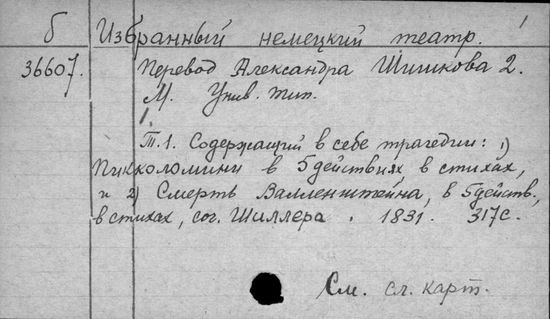 1
б Избранный немецкий театр.
36607. Перевод Александра Шишкова 2.
М. Унив. тип.
1.
Т. 1. Содержащий в себе трагедии: 1)
Пикколомини в 5 действиях в стихах,
и 2) Смерть Валленштейна, в 5 действ.,
в стихах, соч. Шиллера. 1831. 317с.
См. сл. карт.